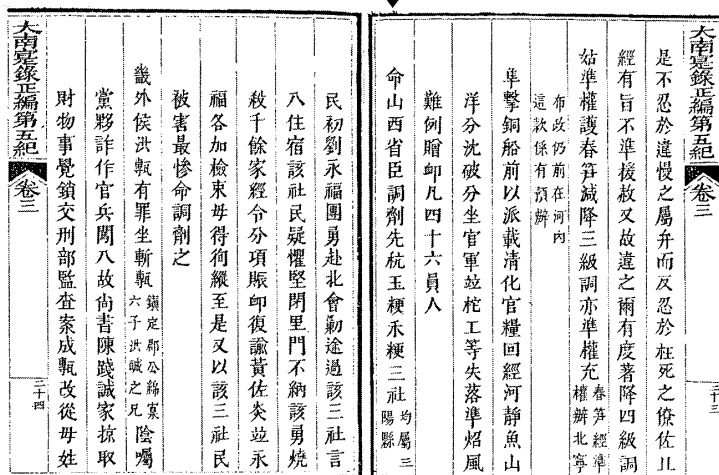 大南寔錄正編第五紀 卷三 三十三
是不忍於違慢之屬弁而反忍於枉死之僚佐且
經有旨不準援赦又故違之爾有度著降四級調
姑準權護春筭減降三級調亦準權充春筭經準權辦北寧
布政仍前在河內這款係有預辦
隼擊銅船前以派載清化官糧回經河靜魚山
洋分沈破分坐官軍竝柁工等失落準炤風
難例贈卹凡四十六員人
命山西省臣調劑先秔玉粳禾粳三社均屬三陽縣
民初劉永福團勇赴北會勦途過該三社言
入住宿該社民疑懼堅閉里門不納該勇燒
殺千餘家經令分項賑卹復諭黃佐炎竝永
福各加檢束毋得徇縱至是又以該三社民
被害最慘命調劑之
畿外侯洪甎有罪坐斬甎鎮定郡公綿寘六子洪𤌣之兄陰囑
黨夥詐作官兵闖入故尚書陳踐誠家掠取
財物事覺鎖交刑部監查案成甎改從母姓
大南寔錄正編第五紀 卷三 三十四